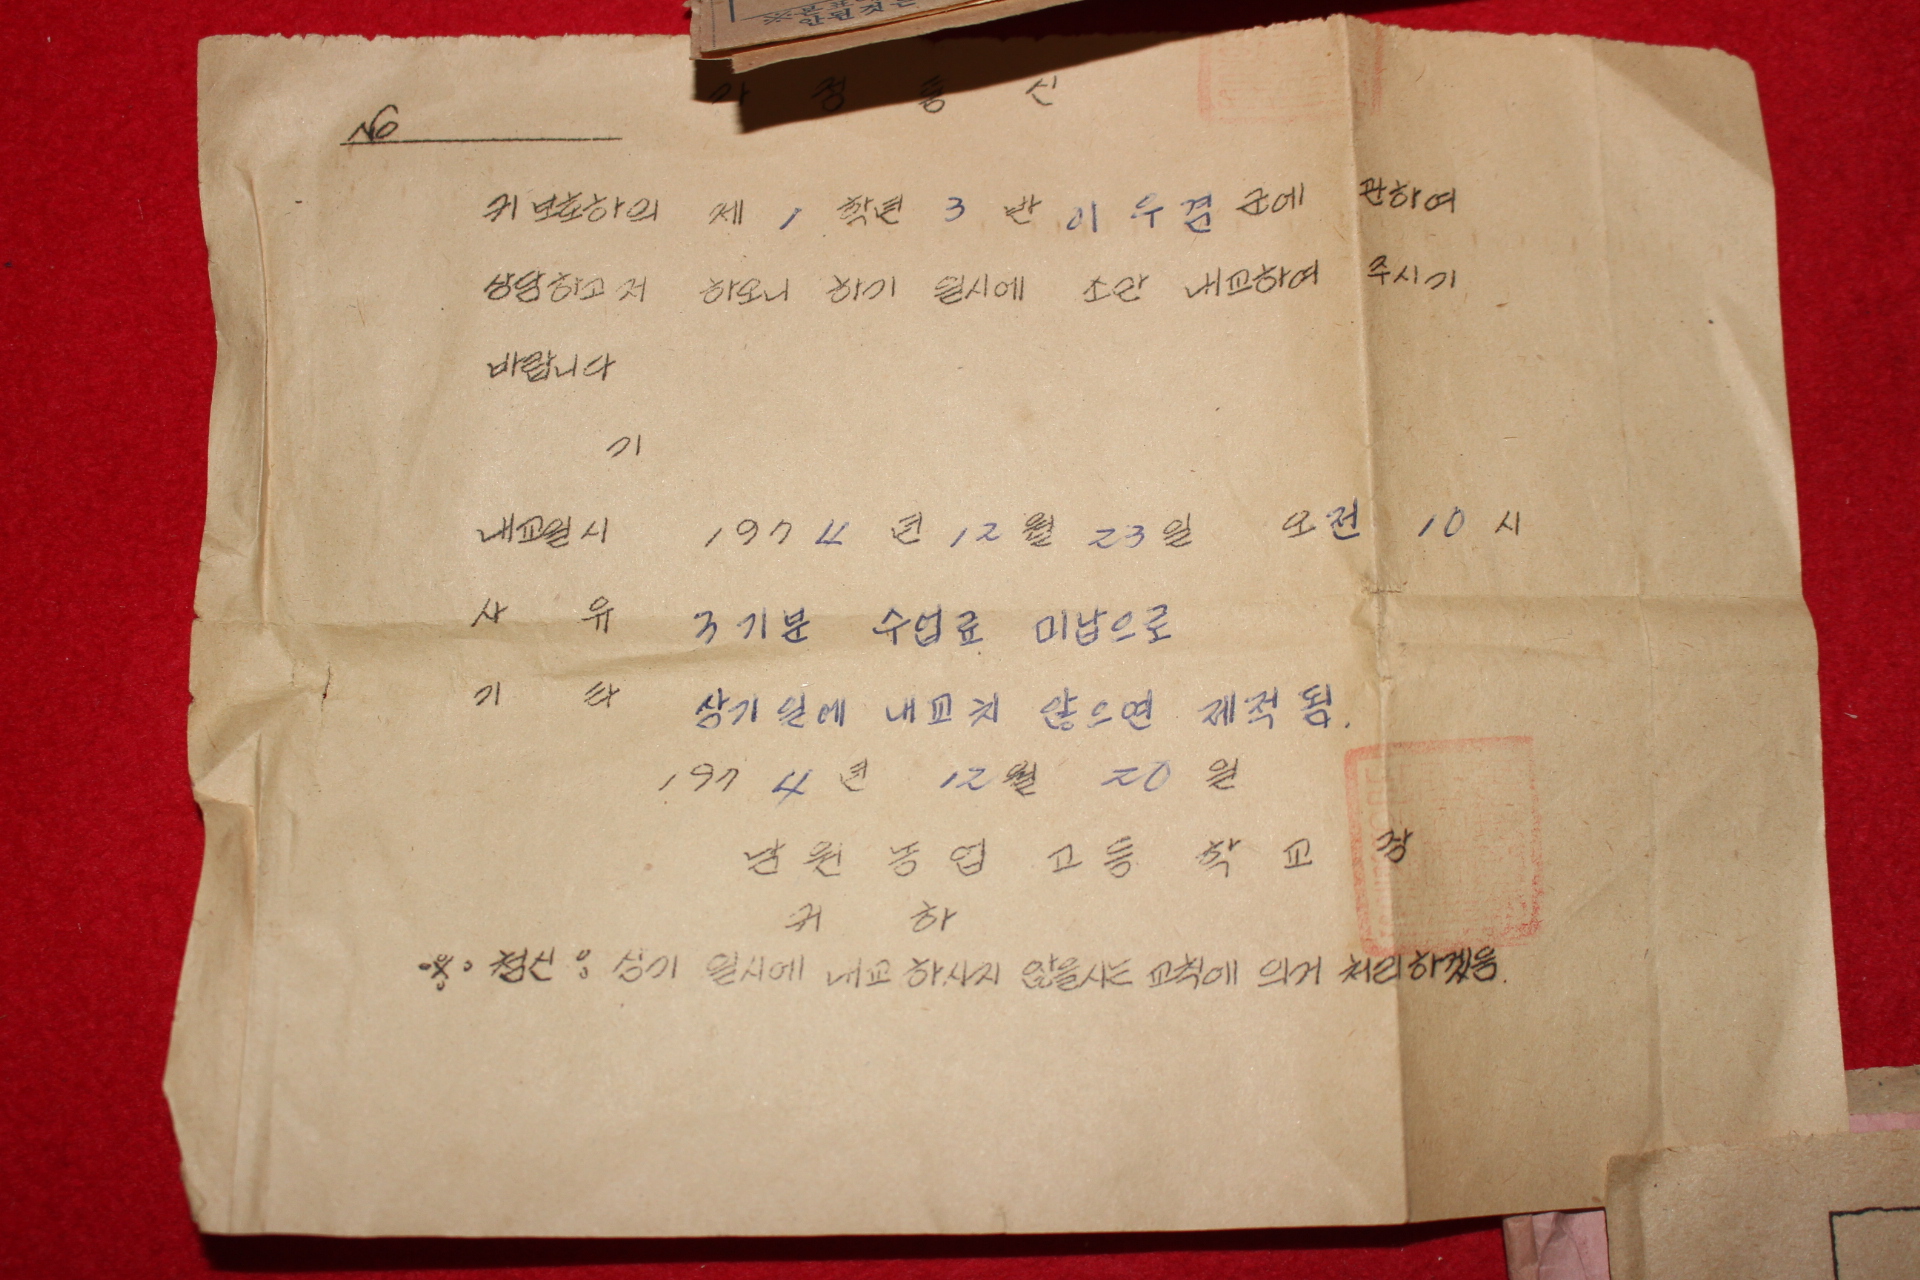 안된것은
가 정 통 신
No
귀 보호하의 제 1 학년 3 반 이 우 겸 군에 관하여
상담하고저 하오니 하기 일시에 소만 내교하여 주시기
바랍니다
기
내교일시 1974년 12월 23일 오전 10시
사 유 3기분 수업료 미납으로
기 타 상기 일에 내교치 않으면 제적 됨.
1974년 12월 20일
남 원 농 업 고 등 학 교 장
귀 하
※ 첨신 : 상기 일시에 내교 하시지 않을시는 교칙에 의거 처리하겠음.